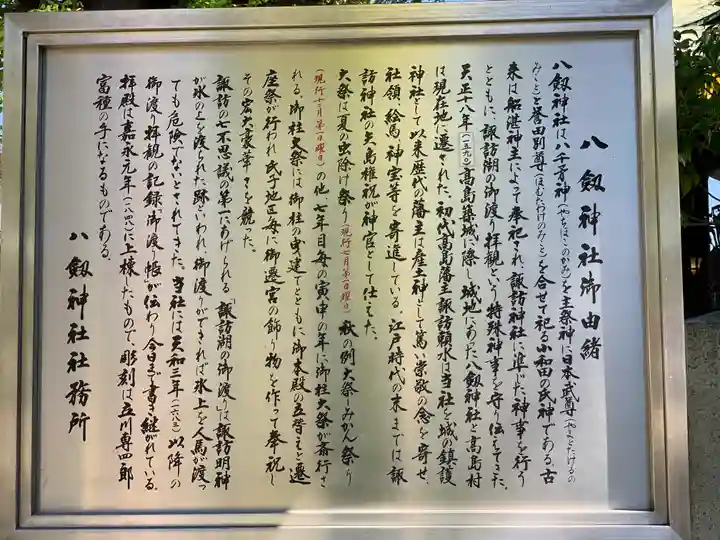 八劔神社御由緒
八劔神社は八千矛神(やちほこのかみ)を主祭神に日本武尊(やまとたけるの
みこと)と誉田別尊(ほむたわけのみこと)を合せて祀る小和田の氏神である。古
来は船湛神主によって奉祀され、諏訪神社に準じた神事を行う
とともに、諏訪湖の御渡り拝観という特殊神事を守り伝えてきた。
天正十八年(一五九〇)高島築城に際し、城地にあった八劔神社と高島村
は現在地に遷された。初代高島藩主諏訪頼水は当社を城の鎮護
神社として以来歴代の藩主は産土神として篤い崇敬の念を寄せ、
社領、絵馬、神宝等を寄進している。江戸時代の末までは諏
訪神社の矢島権祝が神官として仕えた。
大祭は夏の虫除け祭り(現行七月第一日曜日)秋の例大祭・みかん祭り
(現行十二月第一日曜日)の他、七年目毎の寅申の年に御柱大祭が斎行さ
れる。御柱大祭には御柱の曳建てとともに御本殿の立替えと遷
座祭が行われ氏子地区毎に御遷宮の飾り物を作って奉祝し
その宏大豪華さを競った。
諏訪の七不思議の第一にあげられる「諏訪湖の御渡り」は諏訪明神
が氷の上を渡られた跡といわれ、御渡りができれば氷上を人馬が渡っ
ても危険でないとされてきた。当社には天和三年(一六八三)以降の
御渡り拝観の記録「御渡り帳」が伝わり今日まで書き継がれている。
拝殿は嘉永元年(一八四八)に上棟したもので、彫刻は立川専四郎
富種の手になるものである。
八劔神社社務所